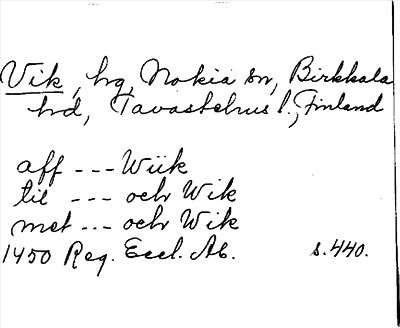 Vik, hg, Nokia sn, Birkkala
hd, Tavastehus l., Finland
aff --- Wiik
til --- och Wik
met --- och Wik
1450 Reg. Eccl. Ab. s. 440.